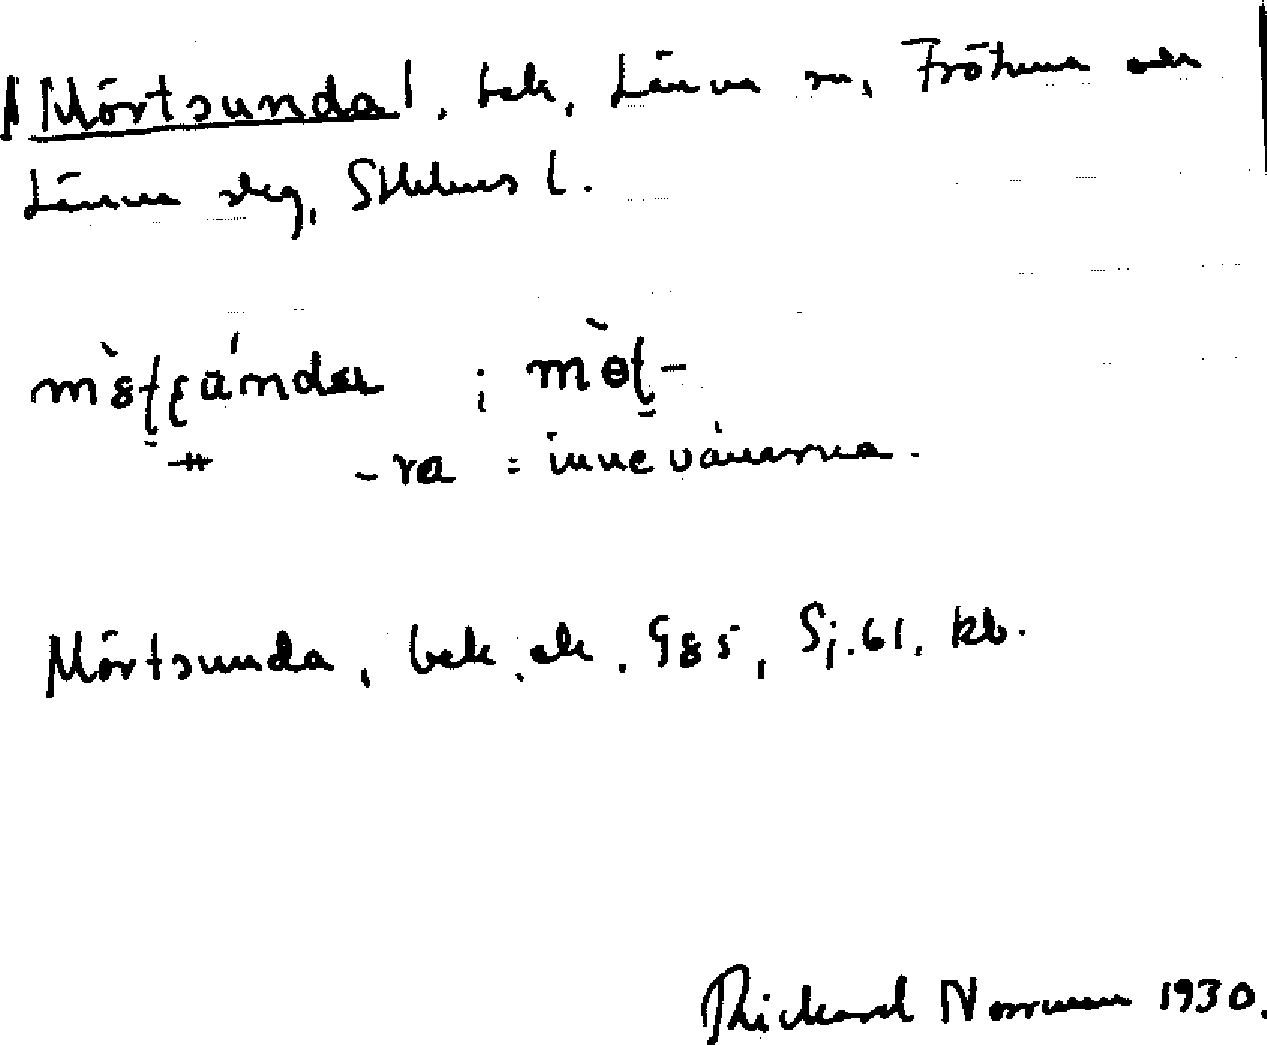 Mörtsunda, bek, Länna sn, Fröt­una och
Länna slg, Sthlms l.
mö̀ʈʂúnda ; mòʈ-
-ra = innevånarna.
Mörtsunda, bek, ek. G85, Sj.61, kb.
Rickard Norrman 1930.